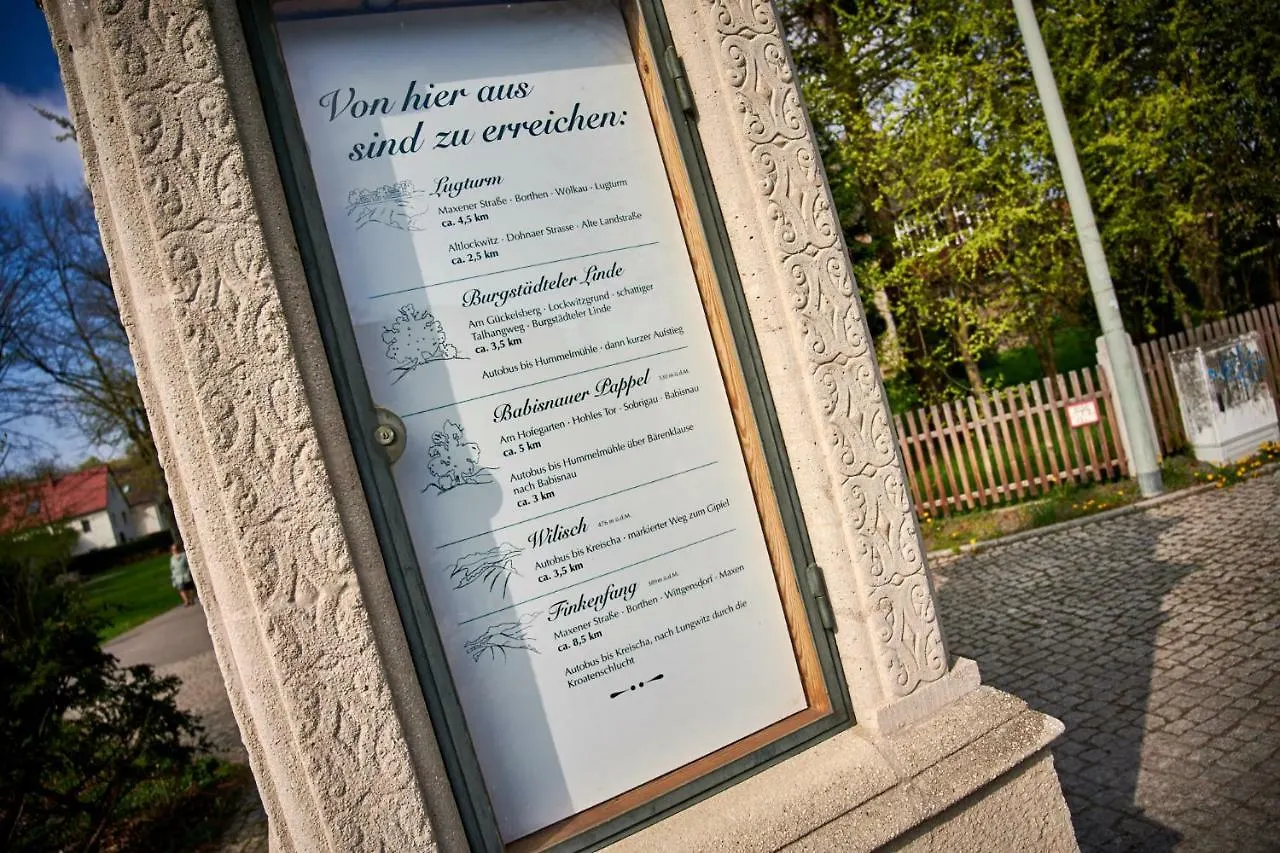 Von hier aus
sind zu erreichen:
Lugturm
Maxener Straße · Borthen · Wölkau · Lugturm
ca. 4,5 km
Altlockwitz · Dohnaer Strasse · Alte Landstraße
ca. 2,5 km
Burgstädteler Linde
Am Gückelsberg · Lockwitzgrund · schattiger
Talhangweg · Burgstädteler Linde
ca. 3,5 km
Autobus bis Hummelmühle · dann kurzer Aufstieg
Babisnauer Pappel 330 m ü.d.M.
Am Hofegarten · Hohles Tor · Sobrigau · Babisnau
ca. 5 km
Autobus bis Hummelmühle über Bärenklause
nach Babisnau
ca. 3 km
Wilisch 476 m ü.d.M.
Autobus bis Kreischa · markierter Weg zum Gipfel
ca. 3,5 km
Finkenfang m ü.d.M.
Maxener Straße · Borthen · Wittgensdorf · Maxen
ca. 8,5 km
Autobus bis Kreischa, nach Lungwitz durch die
Kroatenschlucht